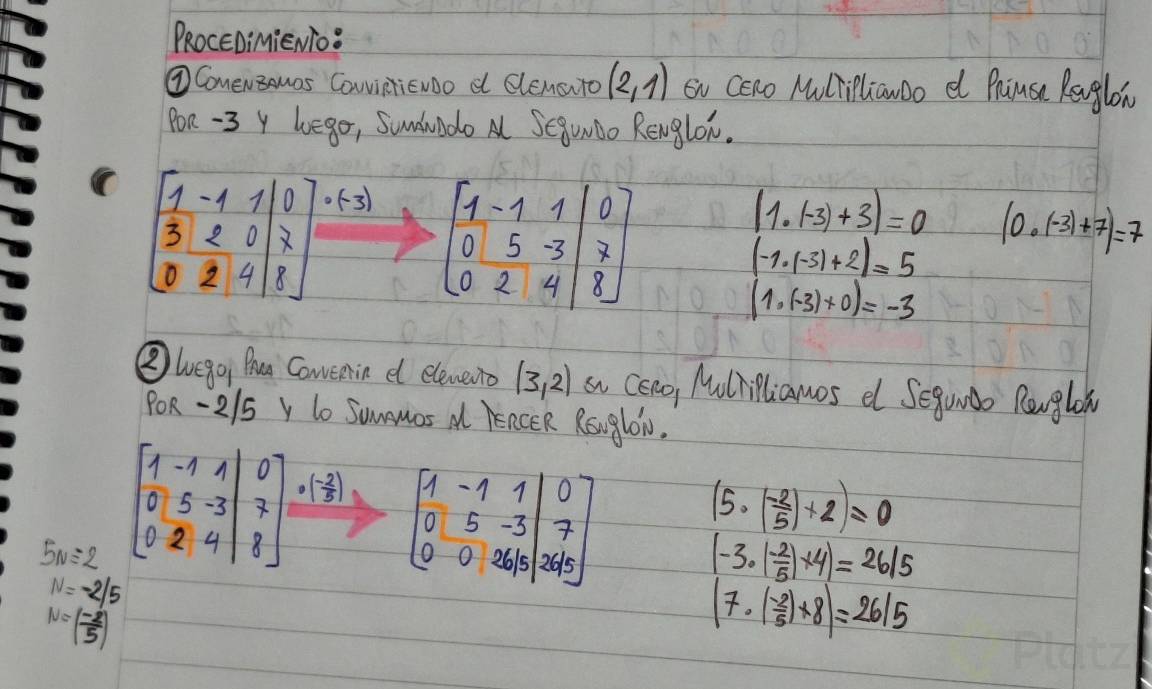 PROCEDIMIENTO:
① COMENZAMOS CONVIRTIENDO el ElEMENTO (2,1) EN CERO MulTIPliCANDO el PRIMER RENglÓN
POR -3 Y luEgo, SUMÁNDOlo Al SEgUNDO RENglÓN.
[1 -1 1 | 0] ·(-3) [1 -1 1 | 0] (1·(-3)+3)=0 (0·(-3)+7)=7
[3 2 0 | 7] [0 5 -3 | 7] (-1·(-3)+2)=5
[0 2 4 | 8] [0 2 4 | 8] (1·(-3)+0)=-3
② luEgo, PARA CONVERTIR el elemento (3,2) EN CERO, MulTipliCAMOS el SEgUNDO RENglÓN
POR -2/5 Y lo SUMAMOS Al TERCER RENglÓN.
[1 -1 1 | 0] ·(-2/5) [1 -1 1 | 0] (5·(-2/5)+2)=0
[0 5 -3 | 7] [0 5 -3 | 7] (-3·(-2/5)+4)=26/5
[0 2 4 | 8] [0 0 26/5 | 26/5] (7·(-2/5)+8)=26/5
5N=2
N=-2/5
N=(-2/5)
Platzi